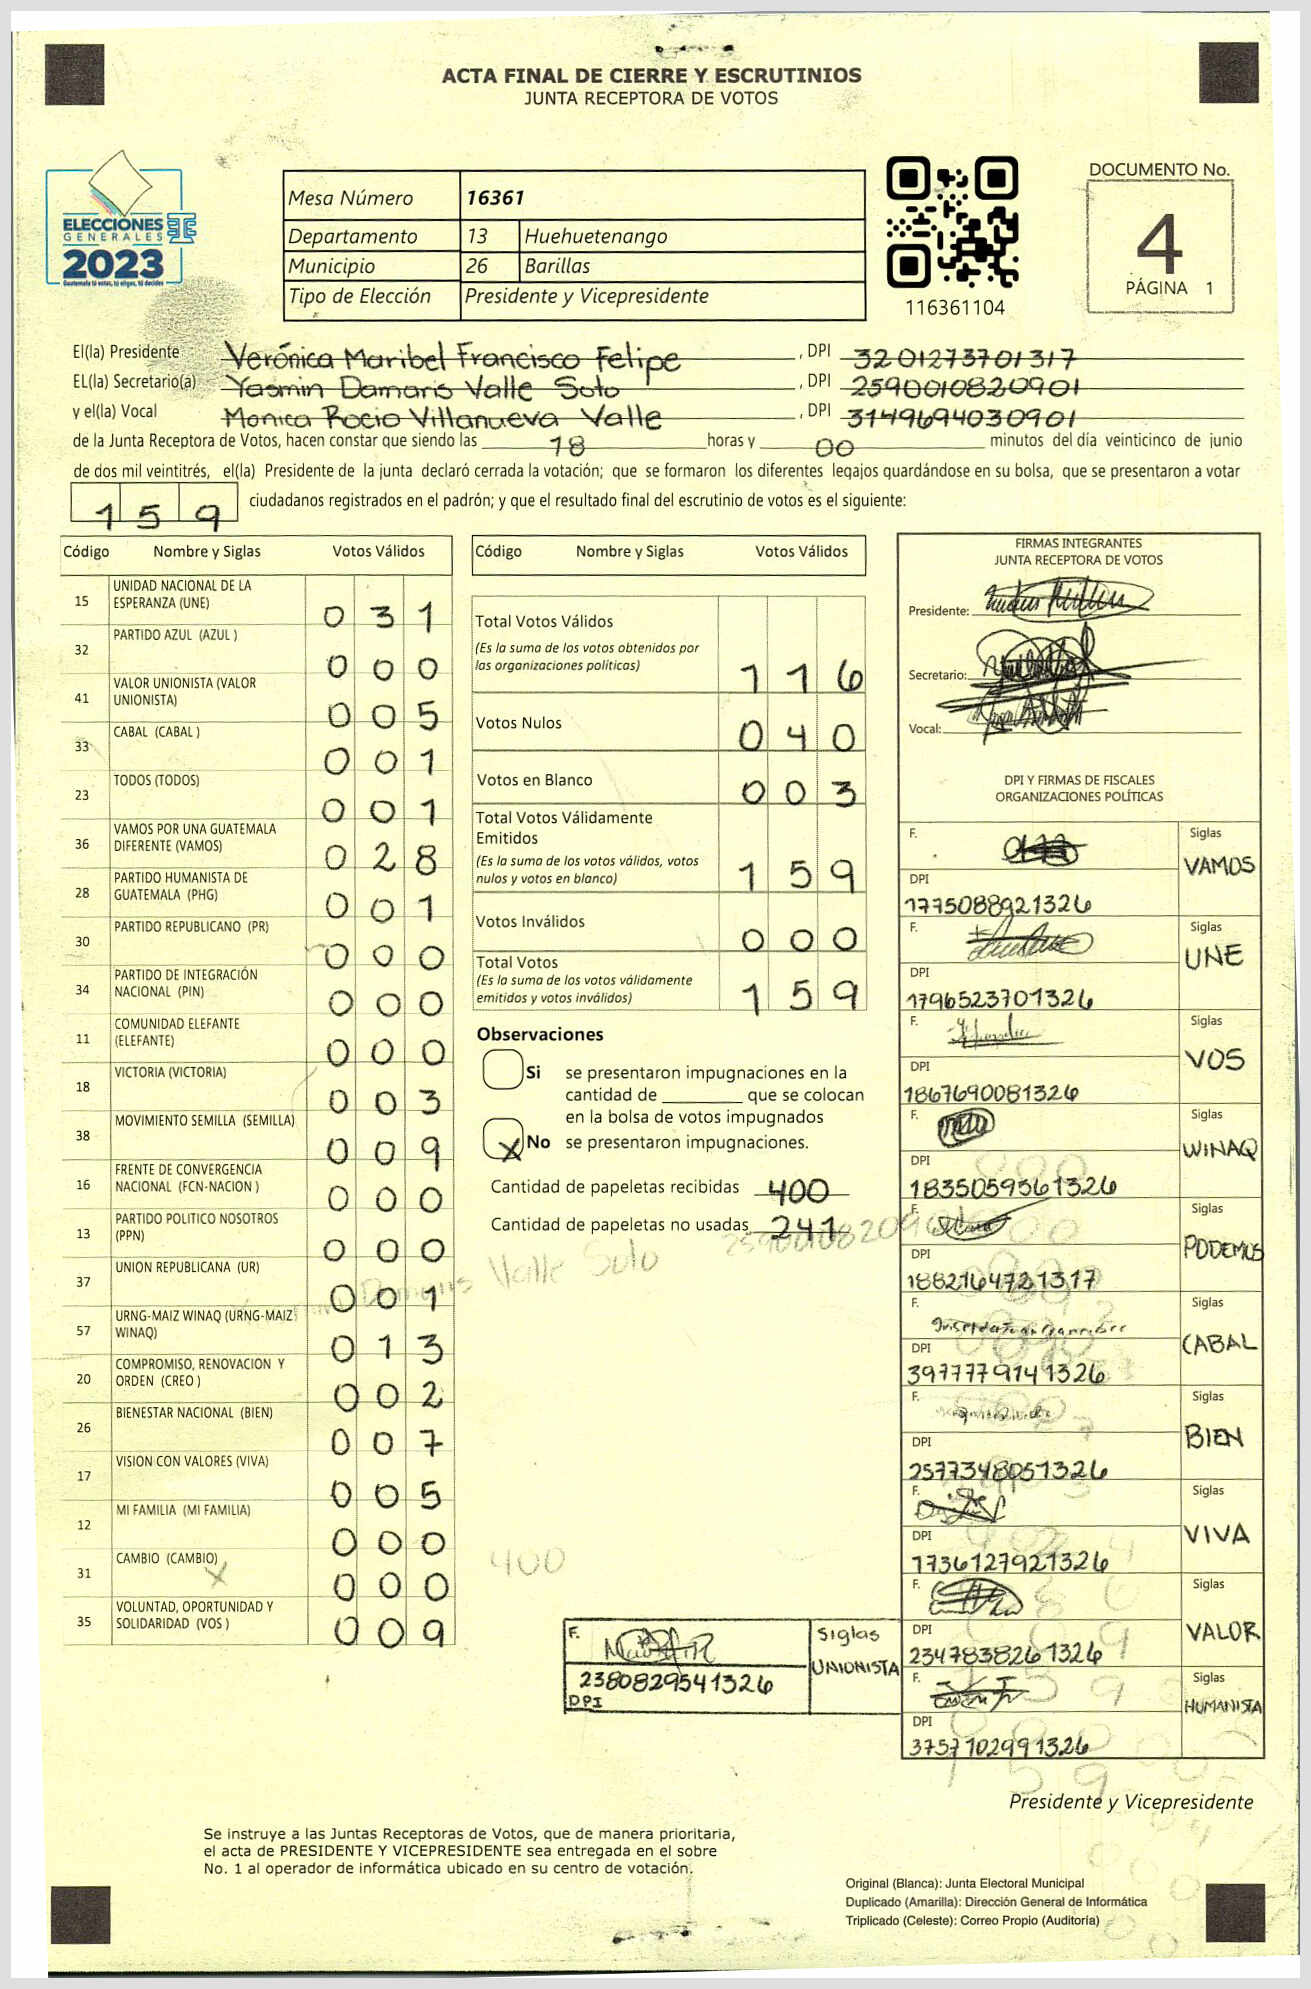 ACTA FINAL DE CIERRE Y ESCRUTINIOS
JUNTA RECEPTORA DE VOTOS
ELECCIONES
GENERALES
2023
Guatemala tú votas, tú eliges, tú decides
Mesa Número 16361
Departamento 13 Huehuetenango
Municipio 26 Barillas
Tipo de Elección Presidente y Vicepresidente
116361104
DOCUMENTO No.
4
PÁGINA 1
El(la) Presidente Verónica Maribel Francisco Felipe , DPI 3201273701317
EL(la) Secretario(a) Yasmin Damaris Valle Soto , DPI 2590010820901
y el(la) Vocal Monica Rocio Villanueva Valle , DPI 3149694030901
de la Junta Receptora de Votos, hacen constar que siendo las 18 horas y 00 minutos del día veinticinco de junio
de dos mil veintitrés, el(la) Presidente de la junta declaró cerrada la votación; que se formaron los diferentes legajos quardándose en su bolsa, que se presentaron a votar
159 ciudadanos registrados en el padrón; y que el resultado final del escrutinio de votos es el siguiente:
Código Nombre y Siglas Votos Válidos
15 UNIDAD NACIONAL DE LA
ESPERANZA (UNE) 031
32 PARTIDO AZUL (AZUL ) 000
41 VALOR UNIONISTA (VALOR
UNIONISTA) 005
33 CABAL (CABAL ) 001
23 TODOS (TODOS) 001
36 VAMOS POR UNA GUATEMALA
DIFERENTE (VAMOS) 028
28 PARTIDO HUMANISTA DE
GUATEMALA (PHG) 001
30 PARTIDO REPUBLICANO (PR) 000
34 PARTIDO DE INTEGRACIÓN
NACIONAL (PIN) 000
11 COMUNIDAD ELEFANTE
(ELEFANTE) 000
18 VICTORIA (VICTORIA) 003
38 MOVIMIENTO SEMILLA (SEMILLA) 009
16 FRENTE DE CONVERGENCIA
NACIONAL (FCN-NACION ) 000
13 PARTIDO POLITICO NOSOTROS
(PPN) 000
37 UNION REPUBLICANA (UR) 001
57 URNG-MAIZ WINAQ (URNG-MAIZ
WINAQ) 013
20 COMPROMISO, RENOVACION Y
ORDEN (CREO ) 002
26 BIENESTAR NACIONAL (BIEN) 007
17 VISION CON VALORES (VIVA) 005
12 MI FAMILIA (MI FAMILIA) 000
31 CAMBIO (CAMBIO) 000
35 VOLUNTAD, OPORTUNIDAD Y
SOLIDARIDAD (VOS ) 009
Código Nombre y Siglas Votos Válidos
Total Votos Válidos
(Es la suma de los votos obtenidos por
las organizaciones políticas) 116
Votos Nulos 040
Votos en Blanco 003
Total Votos Válidamente
Emitidos
(Es la suma de los votos válidos, votos
nulos y votos en blanco) 159
Votos Inválidos 000
Total Votos
(Es la suma de los votos válidamente
emitidos y votos inválidos) 159
Observaciones
Si se presentaron impugnaciones en la
cantidad de ________ que se colocan
en la bolsa de votos impugnados
X No se presentaron impugnaciones.
Cantidad de papeletas recibidas 400
Cantidad de papeletas no usadas 241
Valle Soto
400
F.
2380829541326
DPI
Siglas
UNIONISTA
FIRMAS INTEGRANTES
JUNTA RECEPTORA DE VOTOS
Presidente:
Secretario:
Vocal:
DPI Y FIRMAS DE FISCALES
ORGANIZACIONES POLÍTICAS
F. Siglas
VAMOS
DPI
1775088921326
F. Siglas
UNE
DPI
1796523701326
F. Siglas
VOS
DPI
1867690081326
F. Siglas
WINAQ
DPI
1835059561326
F. Siglas
PODEMOS
DPI
1882164721317
F. Siglas
CABAL
DPI
3977779141326
F. Siglas
BIEN
DPI
2577348051326
F. Siglas
VIVA
DPI
1736127921326
F. Siglas
VALOR
DPI
2347838261326
F. Siglas
HUMANISTA
DPI
3757102991326
Presidente y Vicepresidente
Se instruye a las Juntas Receptoras de Votos, que de manera prioritaria,
el acta de PRESIDENTE Y VICEPRESIDENTE sea entregada en el sobre
No. 1 al operador de informática ubicado en su centro de votación.
Original (Blanca): Junta Electoral Municipal
Duplicado (Amarilla): Dirección General de Informática
Triplicado (Celeste): Correo Propio (Auditoría)